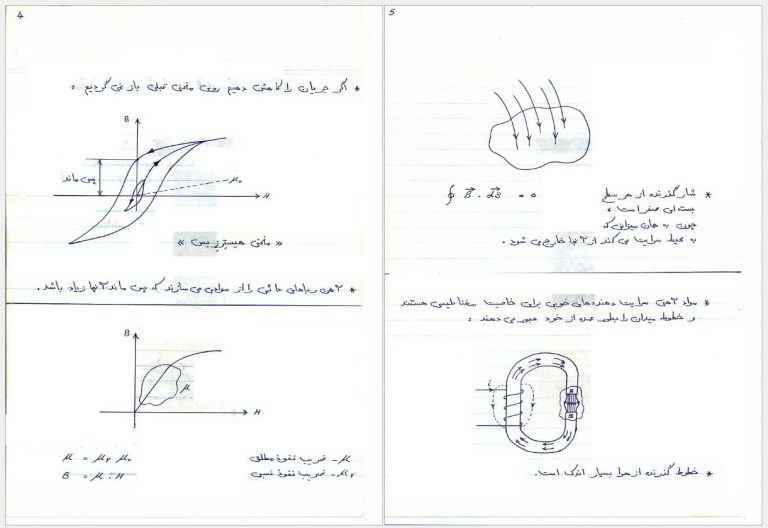 4
* اگر جریان را کاهش دهیم روی منحنی قبلی باز نمی گردیم :
B
پس ماند
μ₀
H
« منحنی هیسترزیس »
* آهن رباهای دائمی را از موادی می سازند که پس ماند آنها زیاد باشد.
B
μ
H
μ = μr μ₀
μ - ضریب نفوذ مطلق
B = μ · H
μr - ضریب نفوذ نسبی
5
* شار گذرنده از هر سطح
∮ B⃗ . ds⃗ = 0
بسته ای صفر است ،
چون به همان میزانی که
به محیط سرایت می کند از آنها خارج می شود .
* مواد آهنی سرایت دهنده های خوبی برای خاصیت مغناطیسی هستند
و خطوط میدان را بطور عمده از خود عبور می دهند :
i
N
S
* خطوط گذرنده از هوا بسیار اندک است.